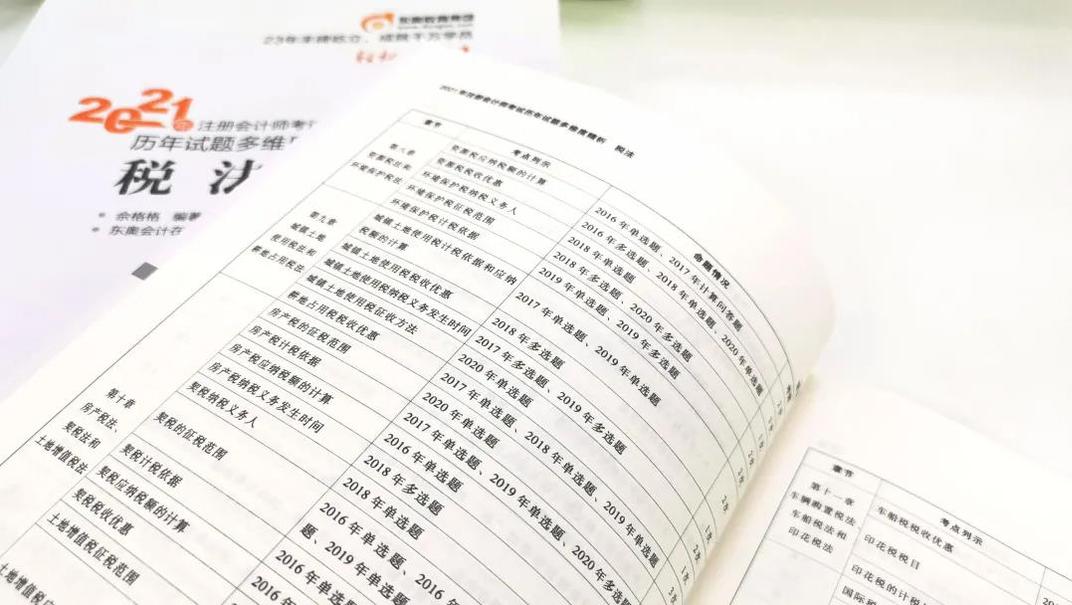 东奥教育集团
23年未拥屹立，成就千万学员
2021年注册会计师考试
历年试题多维
税法
余格格 编著
东奥会计在
2021年注册会计师考试历年试题多维度精析 税法
章节
考点列示
命题情况
第八章
资源税法和
环境保护税法
资源税应纳税额的计算
资源税税收优惠
环境保护税纳税义务人
环境保护税征税范围
环境保护税计税依据
第九章
城镇土地
使用税法和
耕地占用税法
城镇土地使用税计税依据和应纳
税额的计算
城镇土地使用税税收优惠
城镇土地使用税纳税义务发生时间
城镇土地使用税征收方法
耕地占用税税收优惠
第十章
房产税法、
契税法和
土地增值税法
房产税的征税范围
房产税计税依据
房产税应纳税额的计算
房产税纳税义务发生时间
契税纳税义务人
契税的征税范围
契税计税依据
契税应纳税额的计算
契税税收优惠
土地增值税征税范围
2016年单选题、2017年计算问答题
2016年多选题、2018年单选题、2020年单选题
2018年单选题
2018年多选题、2020年多选题
2019年单选题、2019年多选题
2017年单选题、2019年单选题
2018年多选题
2017年多选题、2019年多选题
2020年单选题
2017年单选题、2018年单选题、2019年单选题
2020年单选题
2017年单选题、2019年单选题、2020年多
2016年单选题
2018年多选题
2018年单选题
2016年单选题、2016年
题、2019年单选
2016年单选
2016年
章节
考点列示
第十一章
车辆购置税法、
车船税法和
印花税法
车船税税收优惠
印花税税目
印花税的计税